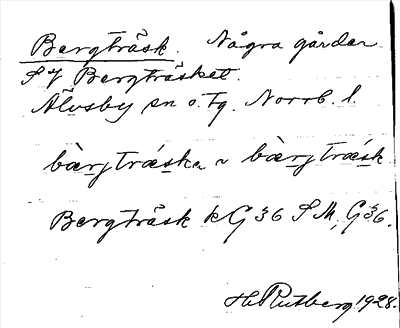 Bergträsk. Några gårdar
S J Bergträsket.
Älvsby sn o. tg. Norrb. l.
bær̀jtrǽska ~ bær̀jtrǽsk
Bergträsk kG 36 SM, G36.
H. Rutberg 1928.